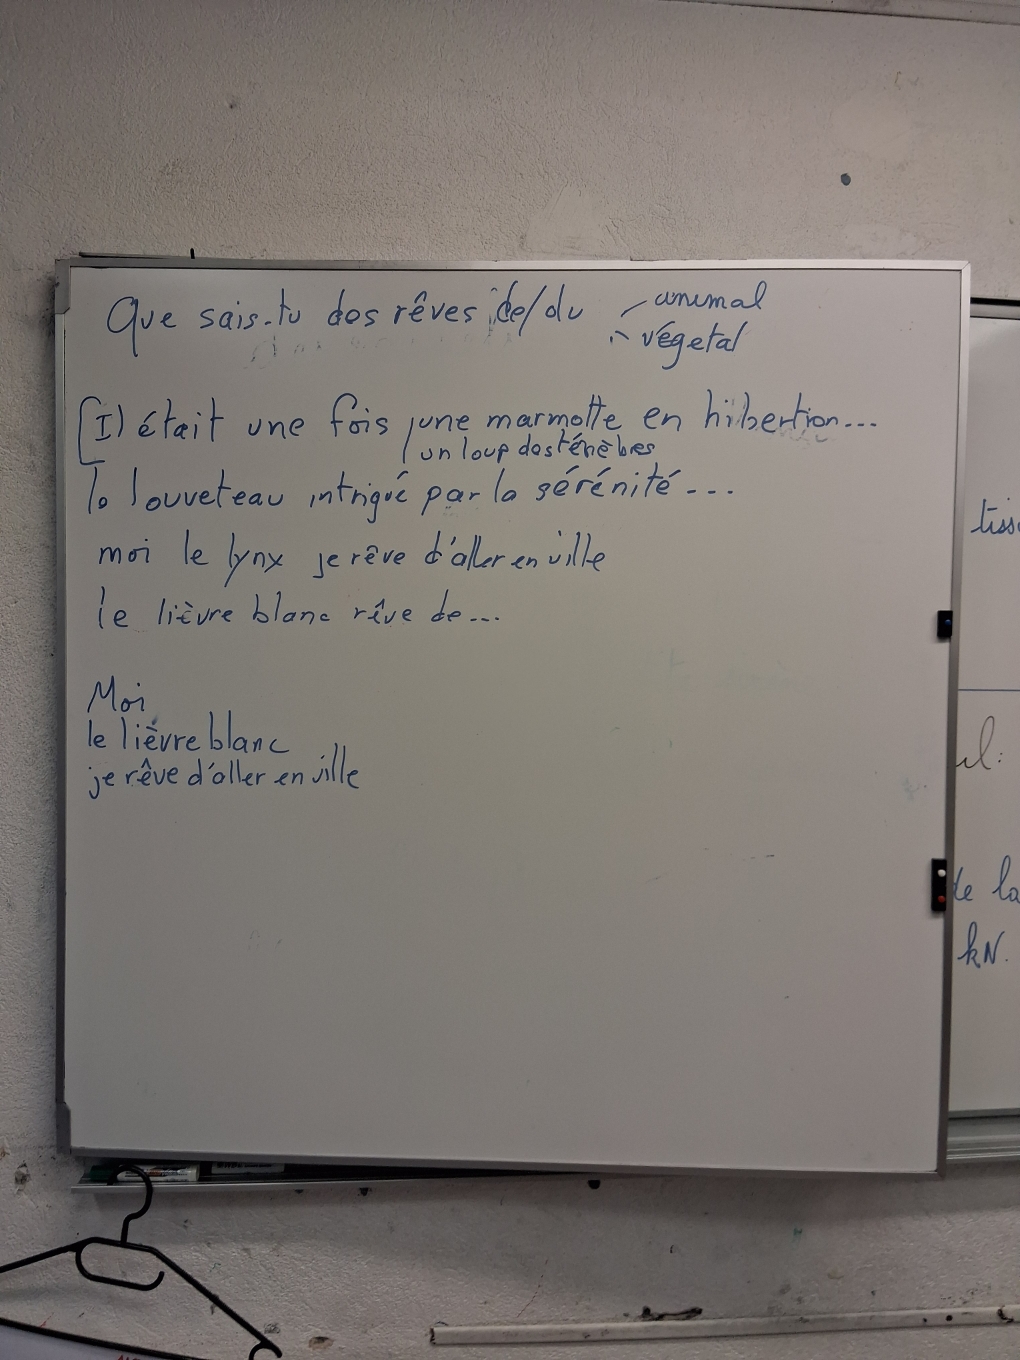 Que sais-tu des rêves de/du animal
végétal
[Il était une fois une marmotte en hibertion...
un loup des ténèbres
le louveteau intrigué par la sérénité...
moi le lynx je rêve d'aller en ville
le lièvre blanc rêve de...
Moi
le lièvre blanc
je rêve d'aller en ville
de la
kN.